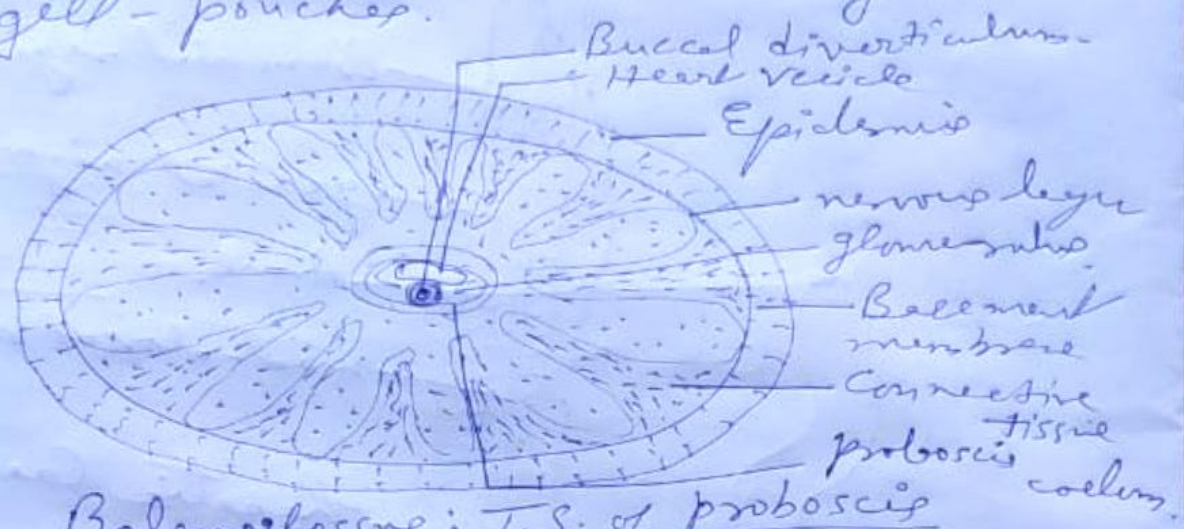 gill - pouches.
Buccal diverticulum
Heart vesicle
Epidermis
nervous layer
glomerulus
Basement
membrane
Connective
tissue
proboscis
coelom
Balanoglossus : T.S. of proboscis